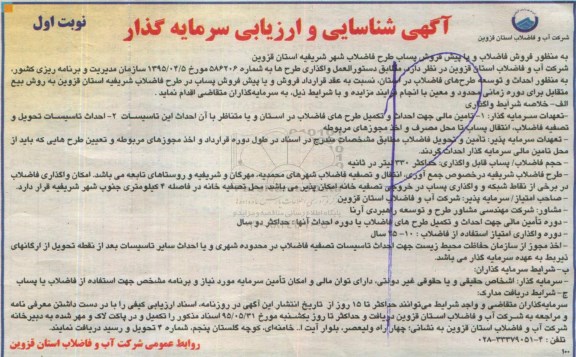 آگهی شناسایی و ارزیابی سرمایه گذار
نوبت اول
شرکت آب و فاضلاب استان قزوین
به منظور فروش فاضلاب و یا پیش فروش پساب طرح فاضلاب شهر شریفیه استان قزوین
شرکت آب و فاضلاب استان قزوین در نظر دارد، مطابق دستورالعمل واگذاری طرح ها به شماره ۵۸۶۲۰۶ مورخ ۱۳۹۵/۰۴/۵ سازمان مدیریت و برنامه ریزی کشور،
به منظور احداث و توسعه طرح‌های فاضلاب در استان، نسبت به عقد قرارداد فروش و یا پیش فروش پساب در طرح فاضلاب شریفیه استان قزوین به روش بیع
متقابل برای دوره زمانی محدود و معین با انجام فرایند مزایده و با شرایط ذیل، به سرمایه‌گذاران متقاضی اقدام نماید.
الف- خلاصه شرایط واگذاری
-تعهدات سرمایه گذار: ۱- تامین مالی جهت احداث و تکمیل طرح های فاضلاب در استان و یا متناظر با آن احداث این تاسیسات ۲- احداث تاسیسات تحویل و
تصفیه فاضلاب، انتقال پساب تا محل مصرف و اخذ مجوزهای مربوطه
-تعهدات سرمایه پذیر: تأمین و تحویل فاضلاب مطابق مشخصات مندرج در اسناد در طول دوره قرارداد و اخذ مجوزهای مربوطه و تعیین طرح هایی که باید از
محل تامین مالی سرمایه گذار احداث گردند.
- حجم فاضلاب/ پساب قابل واگذاری: حداکثر ۳۳۰ لیتر در ثانیه
- طرح فاضلاب شریفیه درخصوص جمع آوری، انتقال و تصفیه فاضلاب شهرهای محمدیه، مهرگان و شریفیه و روستاهای تابعه می باشد. امکان واگذاری فاضلاب
در برخی از نقاط شبکه و واگذاری پساب در خروجی تصفیه خانه امکان پذیر می باشد. محل تصفیه خانه در فاصله ۴ کیلومتری جنوب شهر شریفیه قرار دارد.
- صاحب امتیاز/ سرمایه پذیر: شرکت آب و فاضلاب استان قزوین
- مشاور: شرکت مهندسی مشاور طرح و توسعه راهبردی آرنا
- دوره تأمین مالی جهت احداث و تکمیل طرح های فاضلاب یا دوره احداث آنها: حداکثر دو سال
- دوره واگذاری امتیاز استفاده از فاضلاب: ۱۰- ۲۵ سال
- اخذ مجوز از سازمان حفاظت محیط زیست جهت احداث تاسیسات تصفیه فاضلاب در محدوده شهری و یا احداث سایر تاسیسات بعد از نقطه تحویل از ارگانهای
ذیربط به عهده سرمایه گذار می باشد.
ب- شرایط سرمایه گذاران:
- سرمایه گذار: اشخاص حقیقی و یا حقوقی غیر دولتی، دارای توان مالی و امکان تأمین سرمایه مورد نیاز و برنامه مشخص جهت استفاده از فاضلاب یا پساب
ج- شرایط دریافت مدارک:
سرمایه‌گذاران متقاضی و واجد شرایط می‌توانند حداکثر تا ۱۵ روز از تاریخ انتشار این آگهی در روزنامه، اسناد ارزیابی کیفی را با در دست داشتن معرفی نامه
و مراجعه به شرکت آب و فاضلاب استان قزوین دریافت و حداکثر تا روز یکشنبه مورخ ۹۵/۰۵/۳۱ اسناد مذکور را تکمیل و در پاکت لاک و مهر شده به دبیرخانه
شرکت آب و فاضلاب استان قزوین به نشانی: چهار راه ولیعصر، بلوار آیت ا.. خامنه‌ای، کوچه گلستان پنجم، شماره ۴ تحویل و رسید دریافت نمایند.
تلفن: ۴-۳۳۳۷۹۰۵۱-۰۲۸
روابط عمومی شرکت آب و فاضلاب استان قزوین
۱۰۰